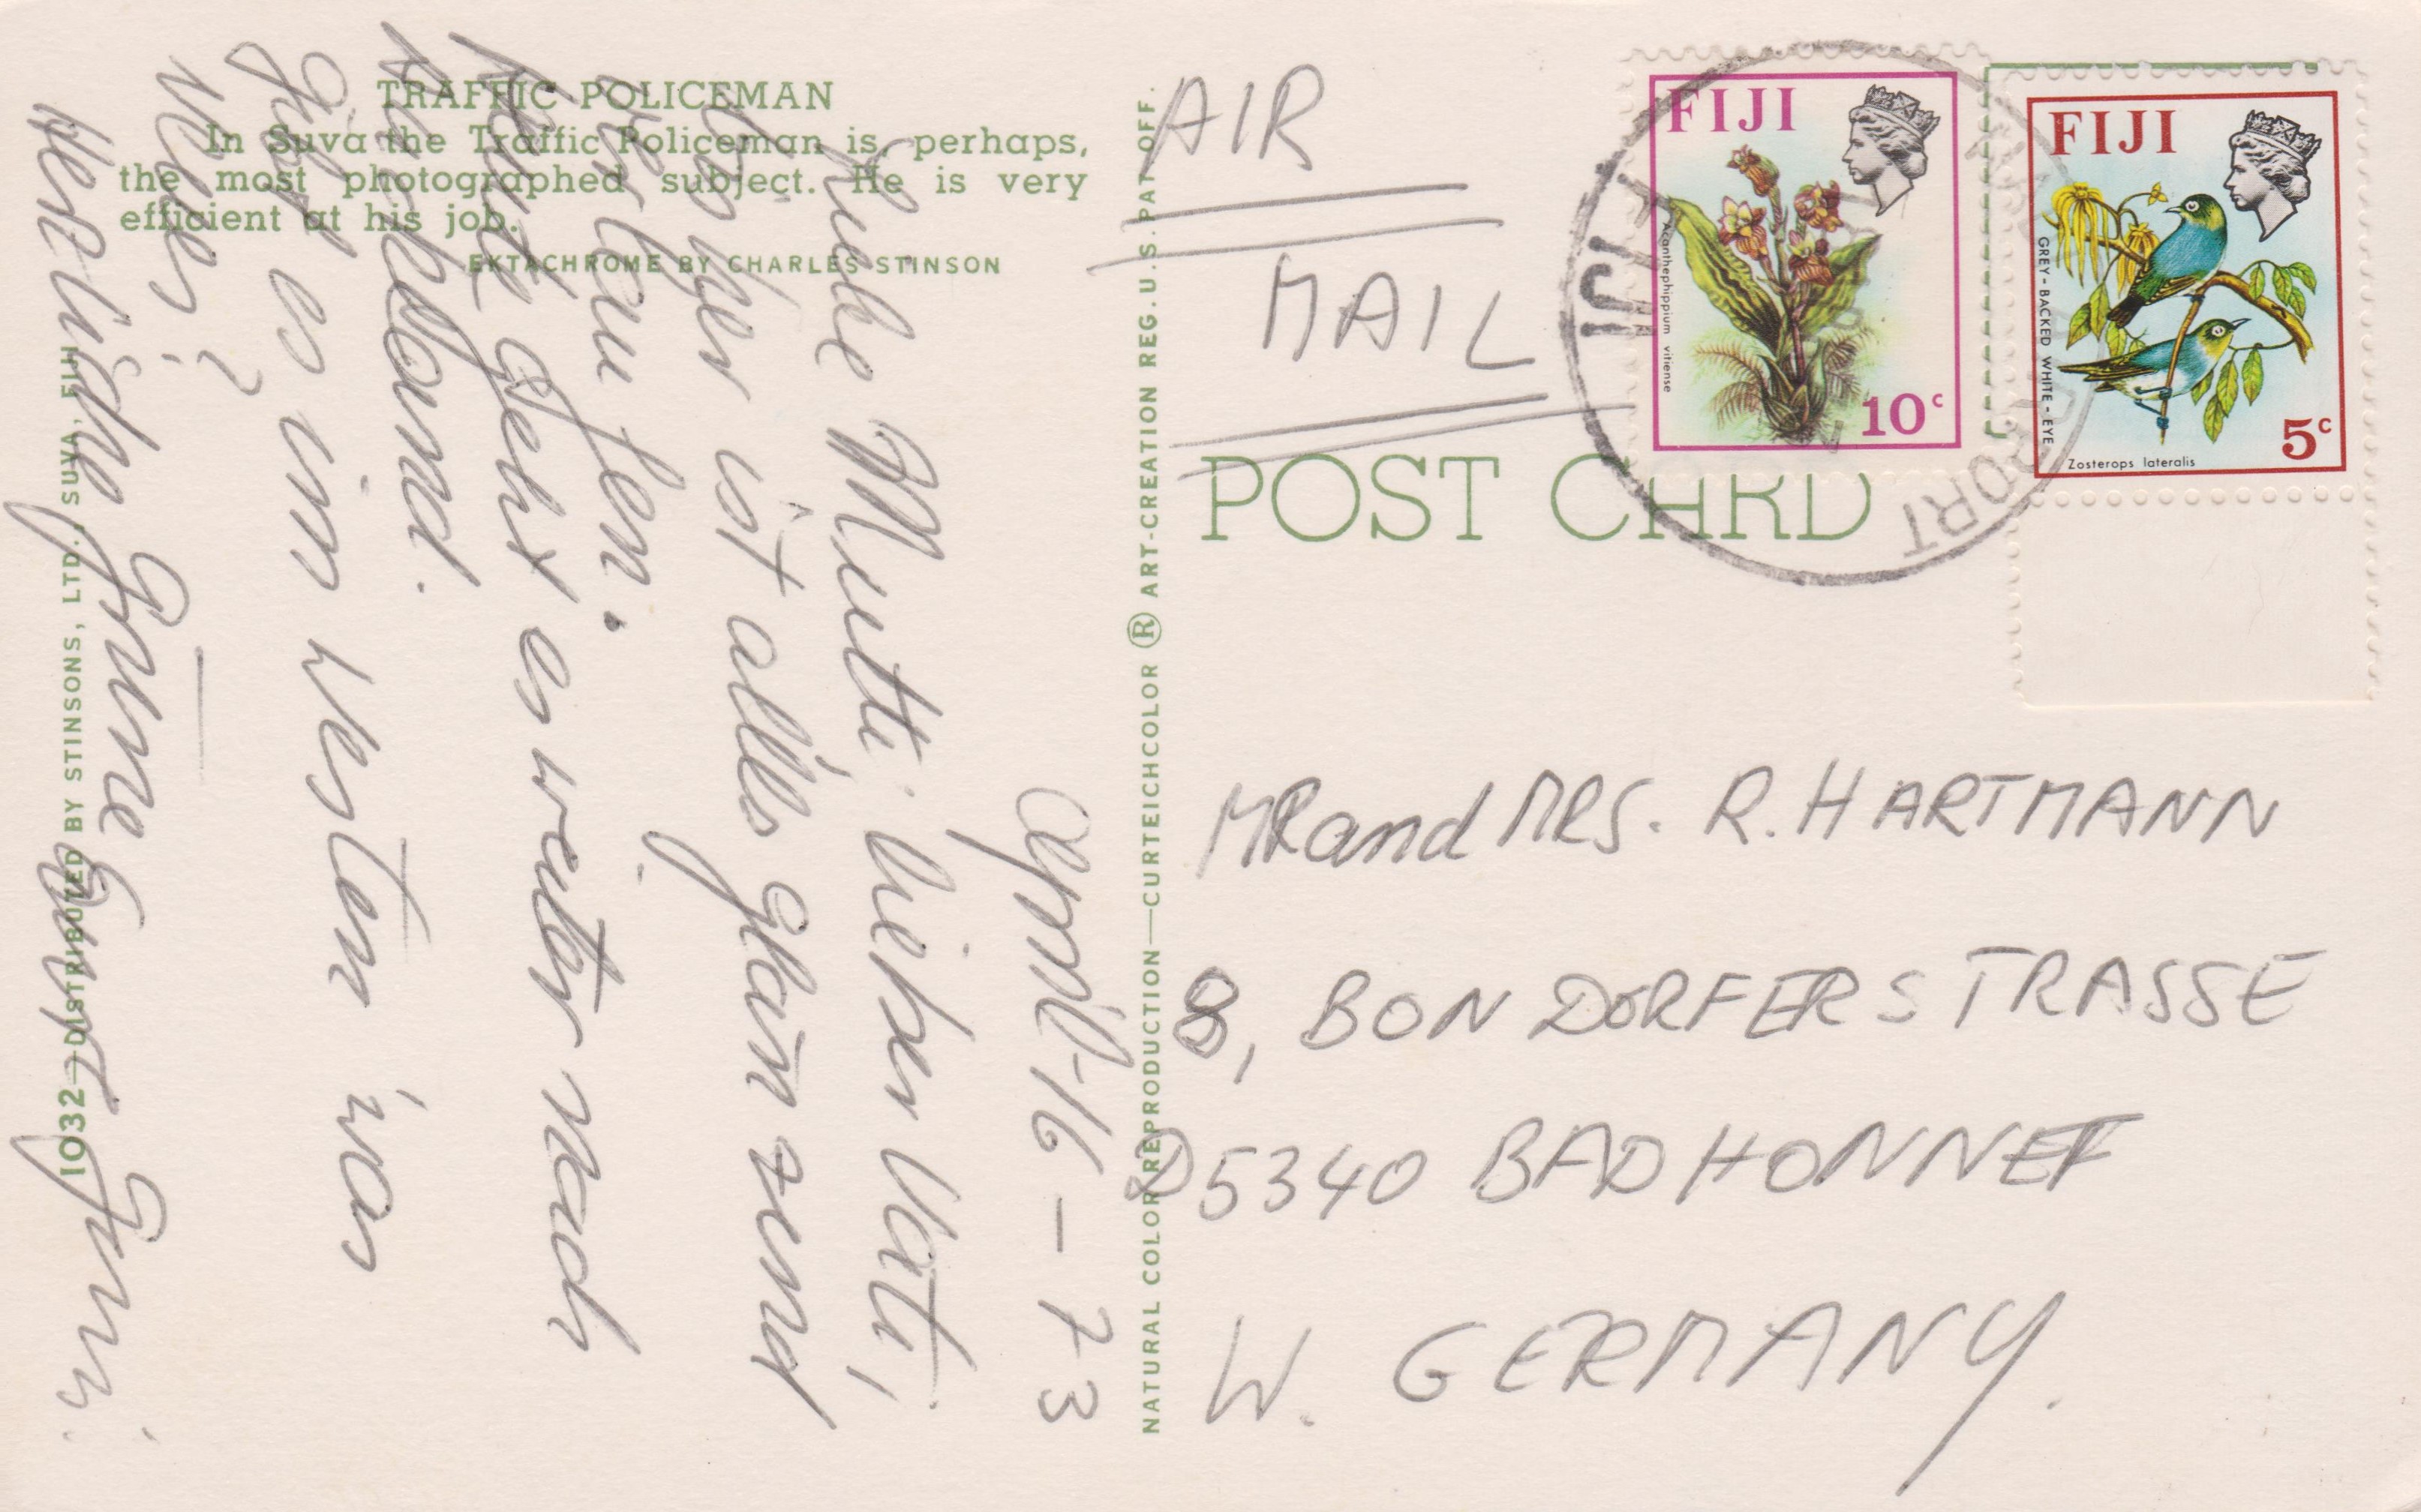 TRAFFIC POLICEMAN
In Suva the Traffic Policeman is, perhaps,
the most photographed subject. He is very
efficient at his job.
EKTACHROME BY CHARLES STINSON
1032—DISTRIBUTED BY STINSONS, LTD., SUVA, FIJI
April-16-73
Liebe Mutti. Lieber Vati,
bisher ist alles glänzend
verlaufen.
Heute geht es weiter nach
Auckland.
Gibt es im Westen was
Neues?
Herzliche Grüsse
NATURAL COLOR REPRODUCTION—CURTEICHCOLOR ® ART-CREATION REG. U.S. PAT. OFF.
AIR
MAIL
POST CARD
FIJI
Acanthephippium vitiense
10c
FIJI
GREY-BACKED WHITE-EYE
Zosterops lateralis
5c
FIJI
AIRPORT
MR and MRS. R. HARTMANN
8, BONDORFERSTRASSE
D 5340 BAD HONNEF
W. GERMANY.